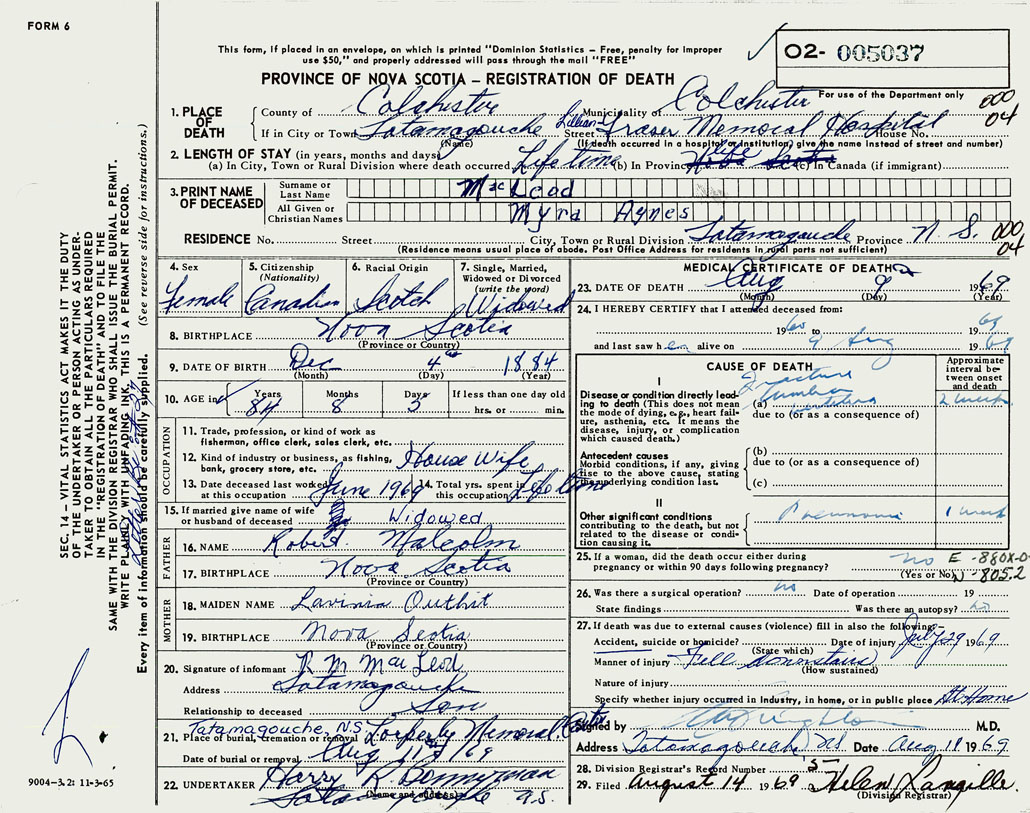 FORM 6
This form, if placed in an envelope, on which is printed "Dominion Statistics — Free, penalty for improper
use $50," and properly addressed will pass through the mail "FREE"
O2- 005037
For use of the Department only
PROVINCE OF NOVA SCOTIA — REGISTRATION OF DEATH
000
04
1. PLACE OF DEATH
County of Colchester Municipality of Colchester
If in City or Town Tatamagouche Street Lillian Fraser Memorial Hospital House No.
(Name) (If death occurred in a hospital or institution, give the name instead of street and number)
2. LENGTH OF STAY (in years, months and days)
(a) In City, Town or Rural Division where death occurred Life time (b) In Province life Nova Scotia (c) In Canada (if immigrant)
3. PRINT NAME OF DECEASED
Surname or Last Name MacLeod
All Given or Christian Names Myra Agnes
RESIDENCE No. Street City, Town or Rural Division Tatamagouche Province N. S.
000
04
(Residence means usual place of abode. Post Office Address for residents in rural parts not sufficient)
4. Sex Female
5. Citizenship (Nationality) Canadian
6. Racial Origin Scotch
7. Single, Married, Widowed or Divorced (write the word) Widowed
8. BIRTHPLACE Nova Scotia
(Province or Country)
9. DATE OF BIRTH Dec 4th 1884
(Month) (Day) (Year)
10. AGE in Years 84 Months 8 Days 5 If less than one day old
hrs. or min.
OCCUPATION
11. Trade, profession, or kind of work as
fisherman, office clerk, sales clerk, etc.
12. Kind of industry or business, as fishing,
bank, grocery store, etc. House Wife
13. Date deceased last worked at this occupation June 1969 14. Total yrs. spent in this occupation Life time
15. If married give name of wife
or husband of deceased Widowed
FATHER
16. NAME Robert Malcolm
17. BIRTHPLACE Nova Scotia
(Province or Country)
MOTHER
18. MAIDEN NAME Lavinia Outhit
19. BIRTHPLACE Nova Scotia
(Province or Country)
20. Signature of informant R M MacLeod
Address Tatamagouche
Relationship to deceased Son
Tatamagouche, N.S.
21. Place of burial, cremation or removal Memorial
Date of burial or removal Aug 11 / 69
22. UNDERTAKER Harry R
Tatamagouche N.S.
(Name and address)
MEDICAL CERTIFICATE OF DEATH
23. DATE OF DEATH Aug 9 1969
(Month) (Day) (Year)
24. I HEREBY CERTIFY that I attended deceased from:
1960 to 1969
and last saw her alive on 9 Aug 1969
CAUSE OF DEATH
Approximate interval between onset and death
I
Disease or condition directly leading to death (This does not mean
the mode of dying, e.g., heart failure, asthenia, etc. It means the
disease, injury, or complication
which caused death.)
(a) Fracture lumbar vertebra 2 weeks
due to (or as a consequence of)
Antecedent causes
Morbid conditions, if any, giving
rise to the above cause, stating
the underlying condition last.
(b)
due to (or as a consequence of)
(c)
II
Other significant conditions
contributing to the death, but not
related to the disease or condition causing it.
Pneumonia 1 week
25. If a woman, did the death occur either during
pregnancy or within 90 days following pregnancy? no
(Yes or No)
E -880X-0
N -805.2
26. Was there a surgical operation? no Date of operation 19
State findings Was there an autopsy? no
27. If death was due to external causes (violence) fill in also the following:—
Accident, suicide or homicide? Date of injury July 29 1969
(State which)
Manner of injury Fell downstairs
(How sustained)
Nature of injury
Specify whether injury occurred in Industry, in home, or in public place At Home
Signed by M.D.
Address Tatamagouche NS Date Aug 11 1969
28. Division Registrar's Record Number 15
29. Filed August 14 1969 Helen Langille
(Division Registrar)
SEC. 14 — VITAL STATISTICS ACT MAKES IT THE DUTY
OF THE UNDERTAKER OR PERSON ACTING AS UNDER-
TAKER TO OBTAIN ALL THE PARTICULARS REQUIRED
IN THE "REGISTRATION OF DEATH" AND TO FILE THE
SAME WITH THE DIVISION REGISTRAR WHO SHALL ISSUE THE BURIAL PERMIT.
WRITE PLAINLY WITH UNFADING INK, THIS IS A PERMANENT RECORD.
Every item of information should be carefully supplied. (See reverse side for instructions.)
9004-3.2: 11-3-65